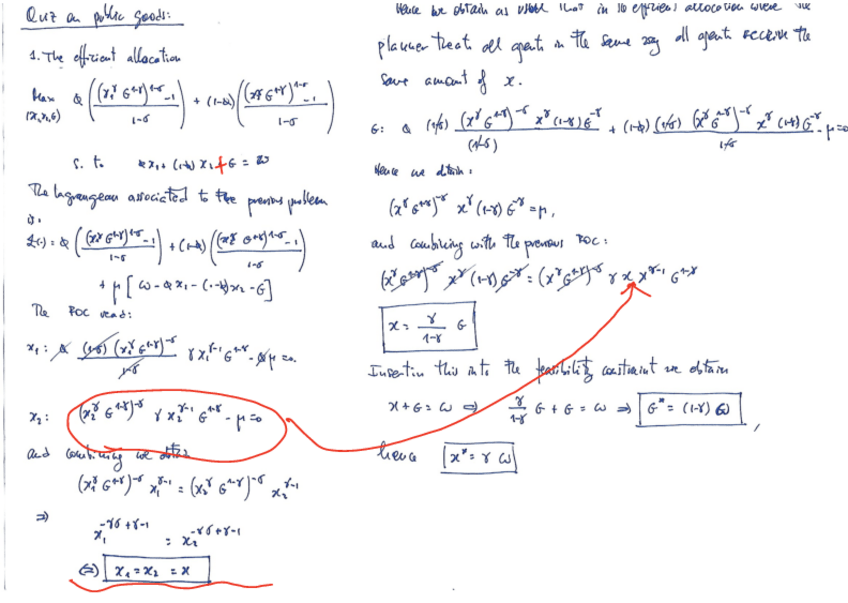 Quiz on public goods:
1. The efficient allocation
Max {x₁,x₂,G} α (((x₁^γ G^{1-γ})^{1-σ} - 1) / (1-σ)) + (1-α) (((x₂^γ G^{1-γ})^{1-σ} - 1) / (1-σ))
s. to αx₁ + (1-α) x₂ + G = ω
The Lagrangean associated to the previous problem
is:
L(·) = α (((x₁^γ G^{1-γ})^{1-σ} - 1) / (1-σ)) + (1-α) (((x₂^γ G^{1-γ})^{1-σ} - 1) / (1-σ))
+ μ [ω - αx₁ - (1-α)x₂ - G]
The FOC read:
x₁: α ((1-σ) (x₁^γ G^{1-γ})^{-σ} / (1-σ)) γ x₁^{γ-1} G^{1-γ} - αμ = 0.
x₂: (x₂^γ G^{1-γ})^{-σ} γ x₂^{γ-1} G^{1-γ} - μ = 0
and combining we obtain
(x₁^γ G^{1-γ})^{-σ} x₁^{γ-1} = (x₂^γ G^{1-γ})^{-σ} x₂^{γ-1}
⇒
x₁^{-γσ+γ-1} = x₂^{-γσ+γ-1}
⇔ x₁ = x₂ = x
Hence we obtain as usual that in an efficient allocation where the
planner treats all agents in the same way all agents receive the
same amount of x.
G: α (1-σ) (x^γ G^{1-γ})^{-σ} x^γ (1-γ) G^{-γ} / (1-σ) + (1-α) (1-σ) (x^γ G^{1-γ})^{-σ} x^γ (1-γ) G^{-γ} / (1-σ) - μ = 0
Hence we obtain:
(x^γ G^{1-γ})^{-σ} x^γ (1-γ) G^{-γ} = μ,
and combining with the previous FOC:
(x^γ G^{1-γ})^{-σ} x^γ (1-γ) G^{-γ} = (x^γ G^{1-γ})^{-σ} γ x x^{γ-1} G^{1-γ}
x = γ/(1-γ) G
Insertin this into the feasibility constraint we obtain
x + G = ω ⇒ γ/(1-γ) G + G = ω ⇒ G* = (1-γ) ω,
hence x* = γ ω